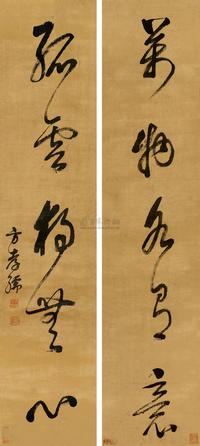 萬物各有意
孤雲獨無心
方孝孺